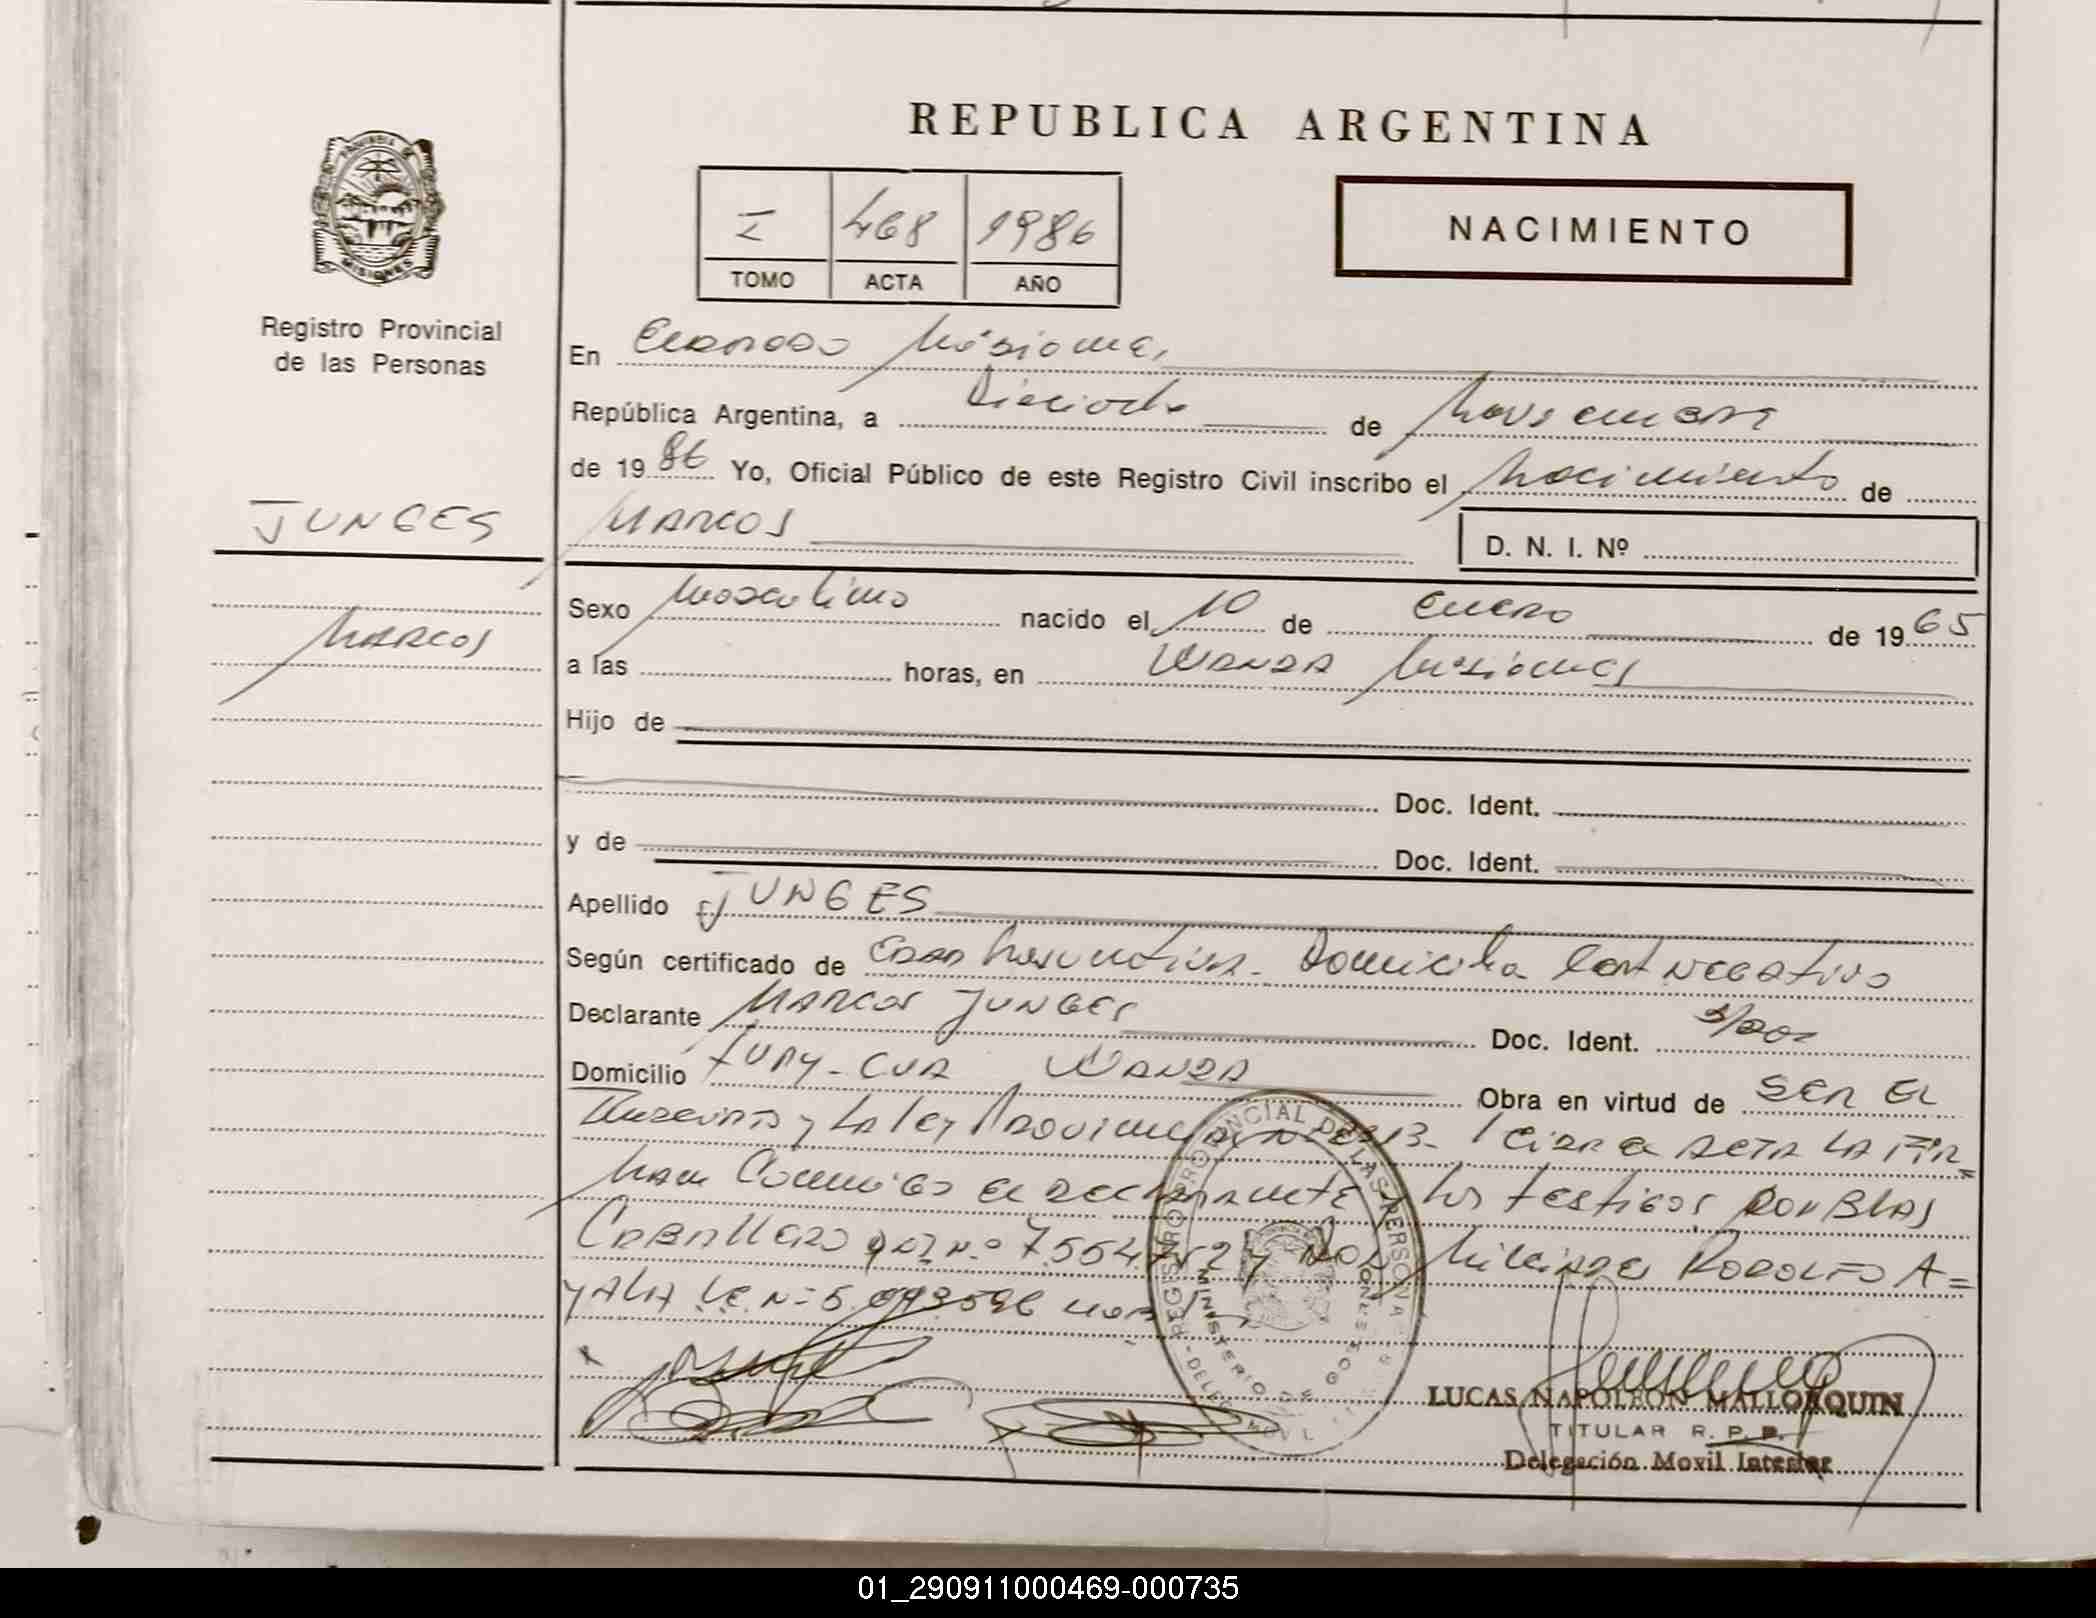 REPUBLICA ARGENTINA
I 468 1986
TOMO ACTA AÑO
NACIMIENTO
PROVINCIA DE MISIONES
Registro Provincial
de las Personas
En Eldorado Misiones
República Argentina, a Dieciocho de Noviembre
de 1986 Yo, Oficial Público de este Registro Civil inscribo el Nacimiento de
JUNGES
MARCOS
D. N. I. Nº
MARCOS
Sexo Masculino nacido el 10 de Enero de 1965
a las horas, en WANDA Misiones
Hijo de
Doc. Ident.
y de Doc. Ident.
Apellido JUNGES
Según certificado de Edad Presuntiva - Domicilio Cert Negativo
Declarante MARCOS JUNGES Doc. Ident. S/Doc
Domicilio WANDA Obra en virtud de SER EL
y LA Ley Provincial ACTA LA FIR=
man Conmigo el declarante y los testigos DON BLAS
CABALLERO DNI N.º 7.554. y DON Milcíades RODOLFO A=
YALA L.E. N=
REGISTRO PROVINCIAL DE LAS PERSONAS
MINISTERIO DE GOB
LUCAS NAPOLEON MALLORQUIN
TITULAR R. P. P.
Delegación Movil Interior
01_290911000469-000735